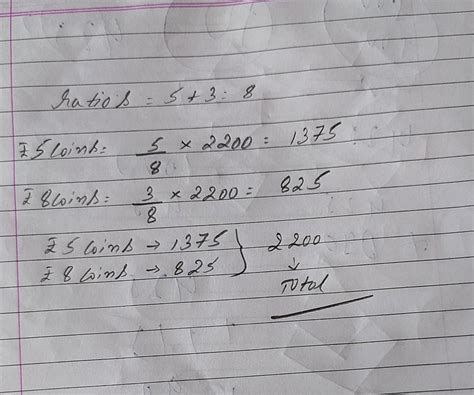 ratios = 5 + 3 = 8
₹ 5 coins = 5/8 × 2200 = 1375
₹ 8 coins = 3/8 × 2200 = 825
₹ 5 coins → 1375 } 2200
₹ 8 coins → 825 ↓
Total